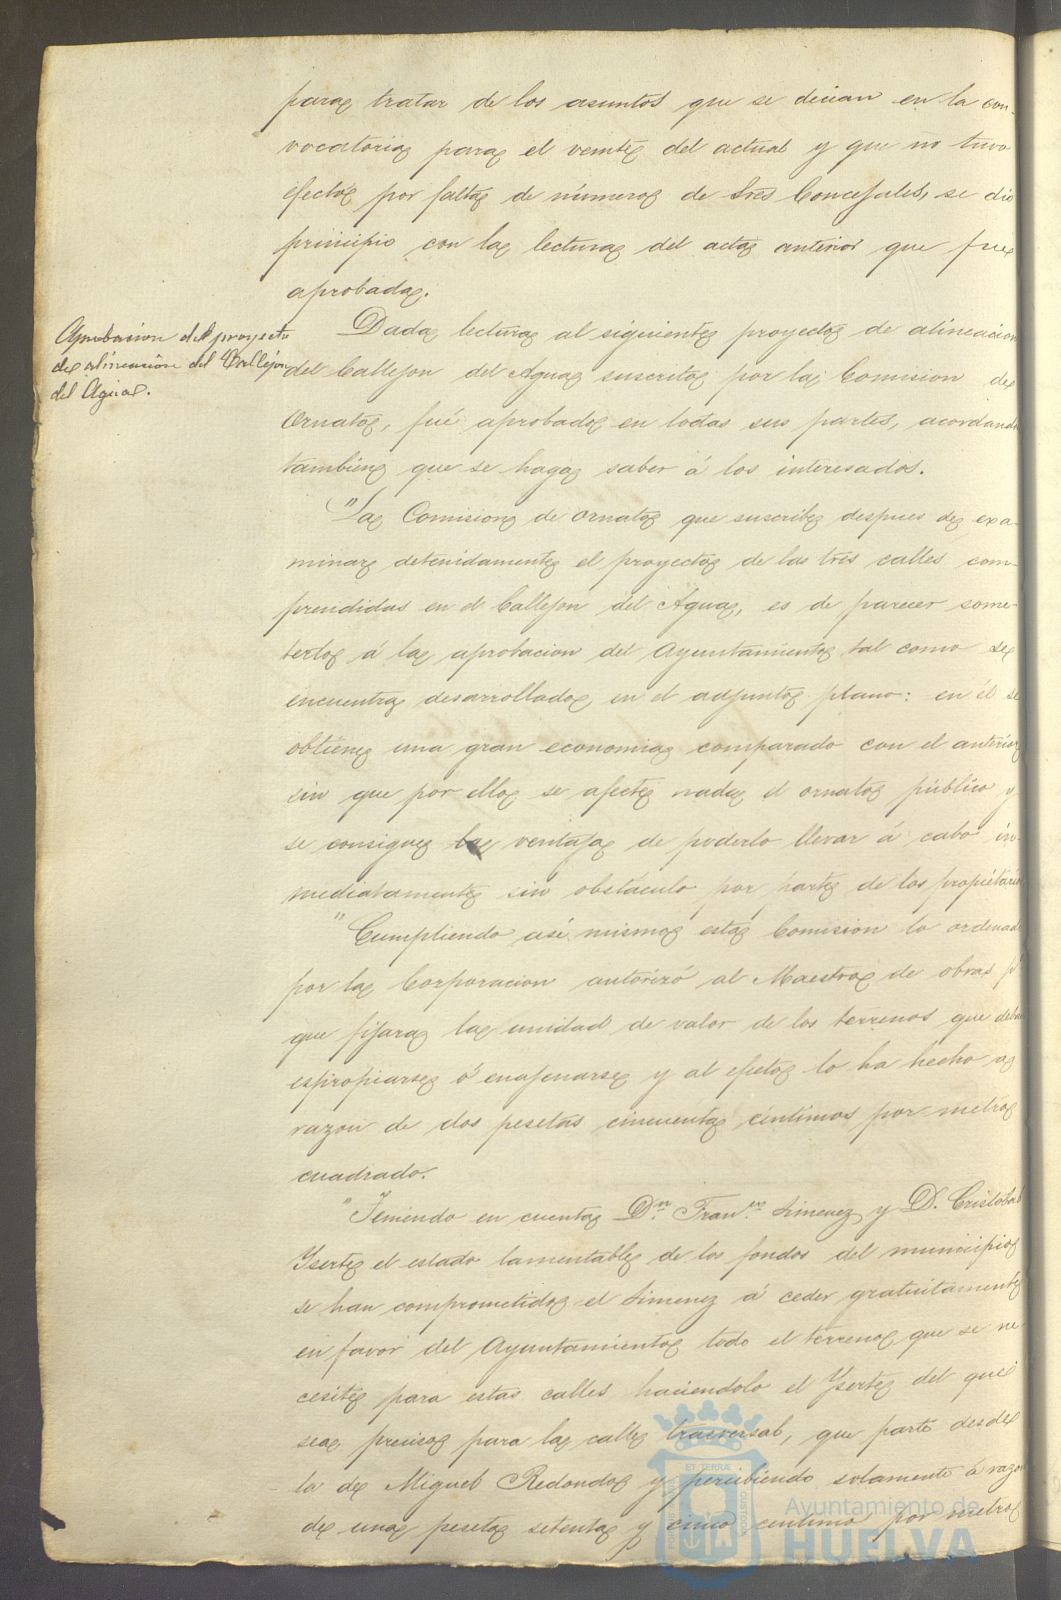 para tratar de los asuntos que se decian en la con-
vocatoria para el veinte del actual y que no tuvo
efecto por falta de número de tres Concejales, se dio
principio con la lectura del acta anterior que fue
aprobada.
Aprobacion del proyecto
de alineacion del Callejon
del Agua.
Dada lectura al siguiente proyecto de alineacion
del Callejon del Agua suscrito por la Comision de
Ornato, fué aprobado en todas sus partes, acordando
tambien que se haga saber á los interesados.
"La Comision de ornato que suscribe despues de exa-
minar detenidamente el proyecto de las tres calles com-
prendidas en el Callejon del Agua, es de parecer some-
terlo á la aprobacion del Ayuntamiento tal como se
encuentra desarrollado en el adjunto plano: en él se
obtiene una gran economia comparado con el anterior
sin que por ello se afecte nada el ornato público y
se consigue la ventaja de poderlo llevar á cabo in-
mediatamente sin obstáculo por parte de los propietarios
"Cumpliendo así mismo esta Comision lo ordenado
por la Corporacion autorizó al Maestro de obras pª
que fijara la unidad de valor de los terrenos que deban
espropiarse ó enajenarse y al efecto lo ha hecho a
razon de dos pesetas cincuenta céntimos por metro
cuadrado.
"Teniendo en cuenta Dn. Franco. Jimenez y D. Cristobal
Yserte el estado lamentable de los fondos del municipio
se han comprometido el Jimenez á ceder gratuitamente
en favor del Ayuntamiento todo el terreno que se ne-
cesite para estas calles haciendolo el Yserte del que
sea preciso para la calle trasversal, que parte desde
la de Miguel Redondo y percibiendo solamente á razon
de una peseta setenta y cinco centimos por metro
Ayuntamiento de
HUELVA